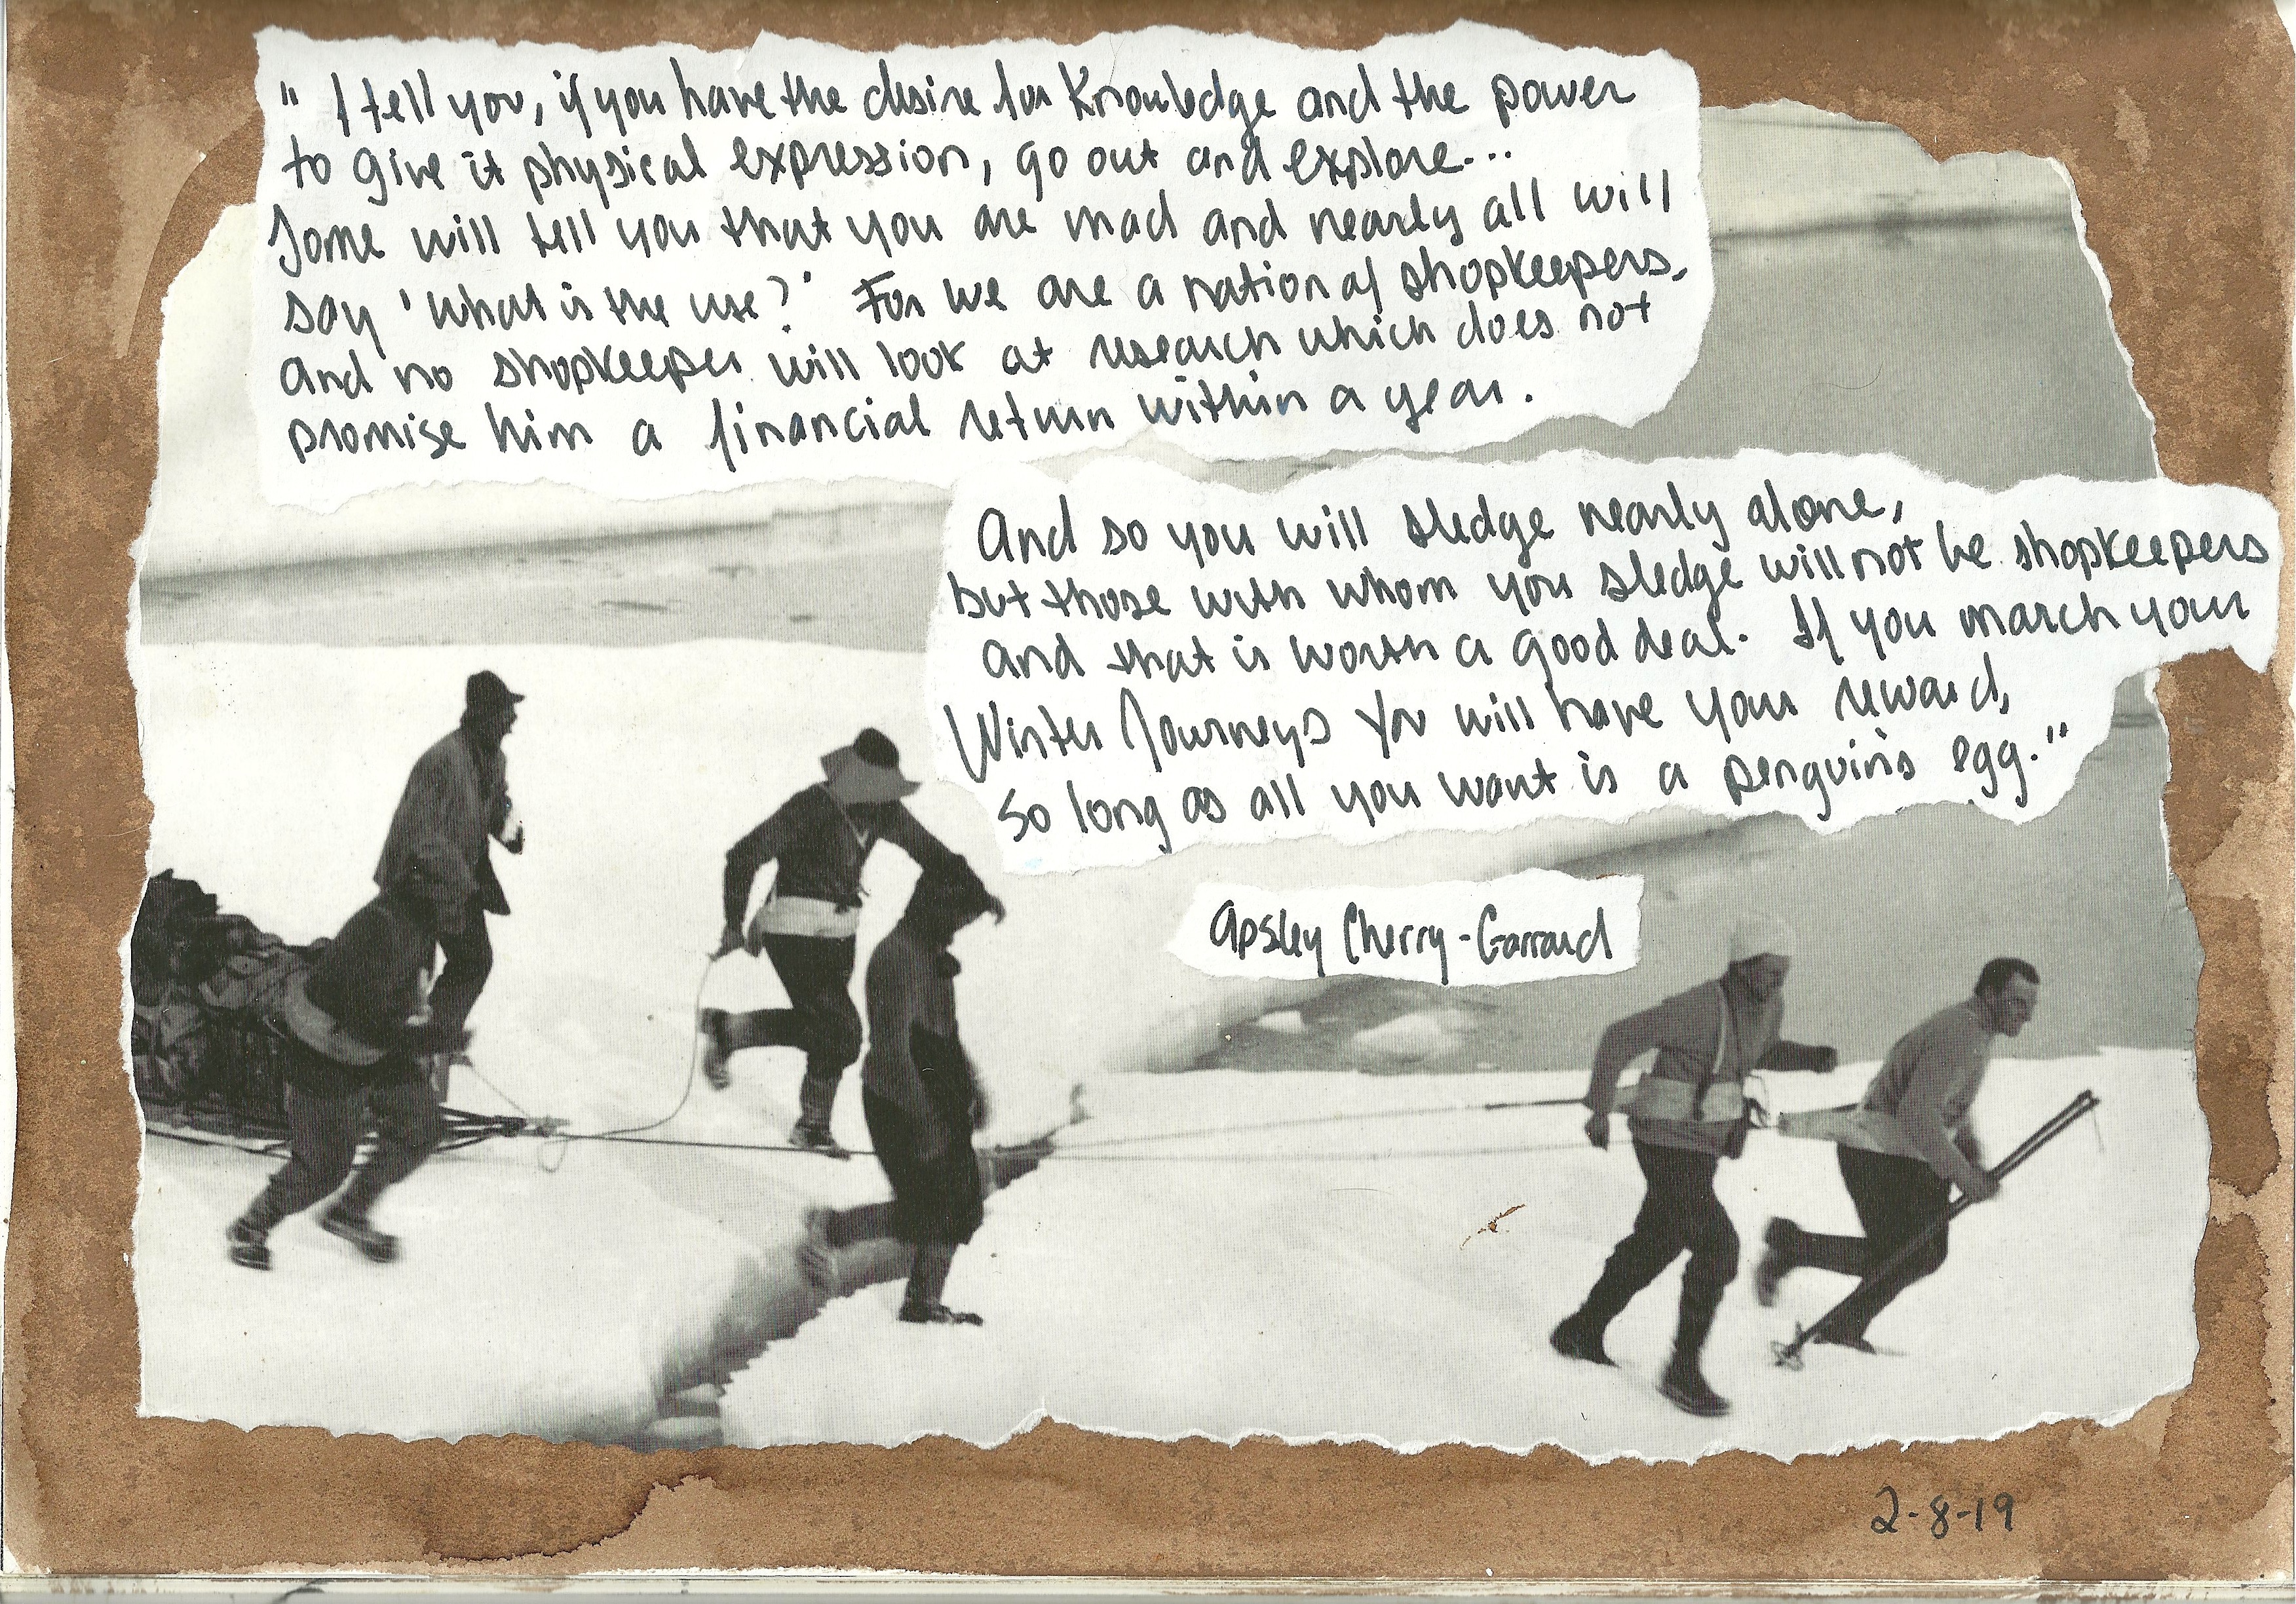 " I tell you, if you have the desire for Knowledge and the power
to give it physical expression, go out and explore...
Some will tell you that you are mad and nearly all will
say 'What is the use?' For we are a nation of shopkeepers,
and no shopkeeper will look at research which does not
promise him a financial return within a year.
And so you will sledge nearly alone,
but those with whom you sledge will not be shopkeepers
and that is worth a good deal. If you march your
Winter Journeys you will have your reward,
so long as all you want is a penguin's egg."
Apsley Cherry-Garrard
2-8-19